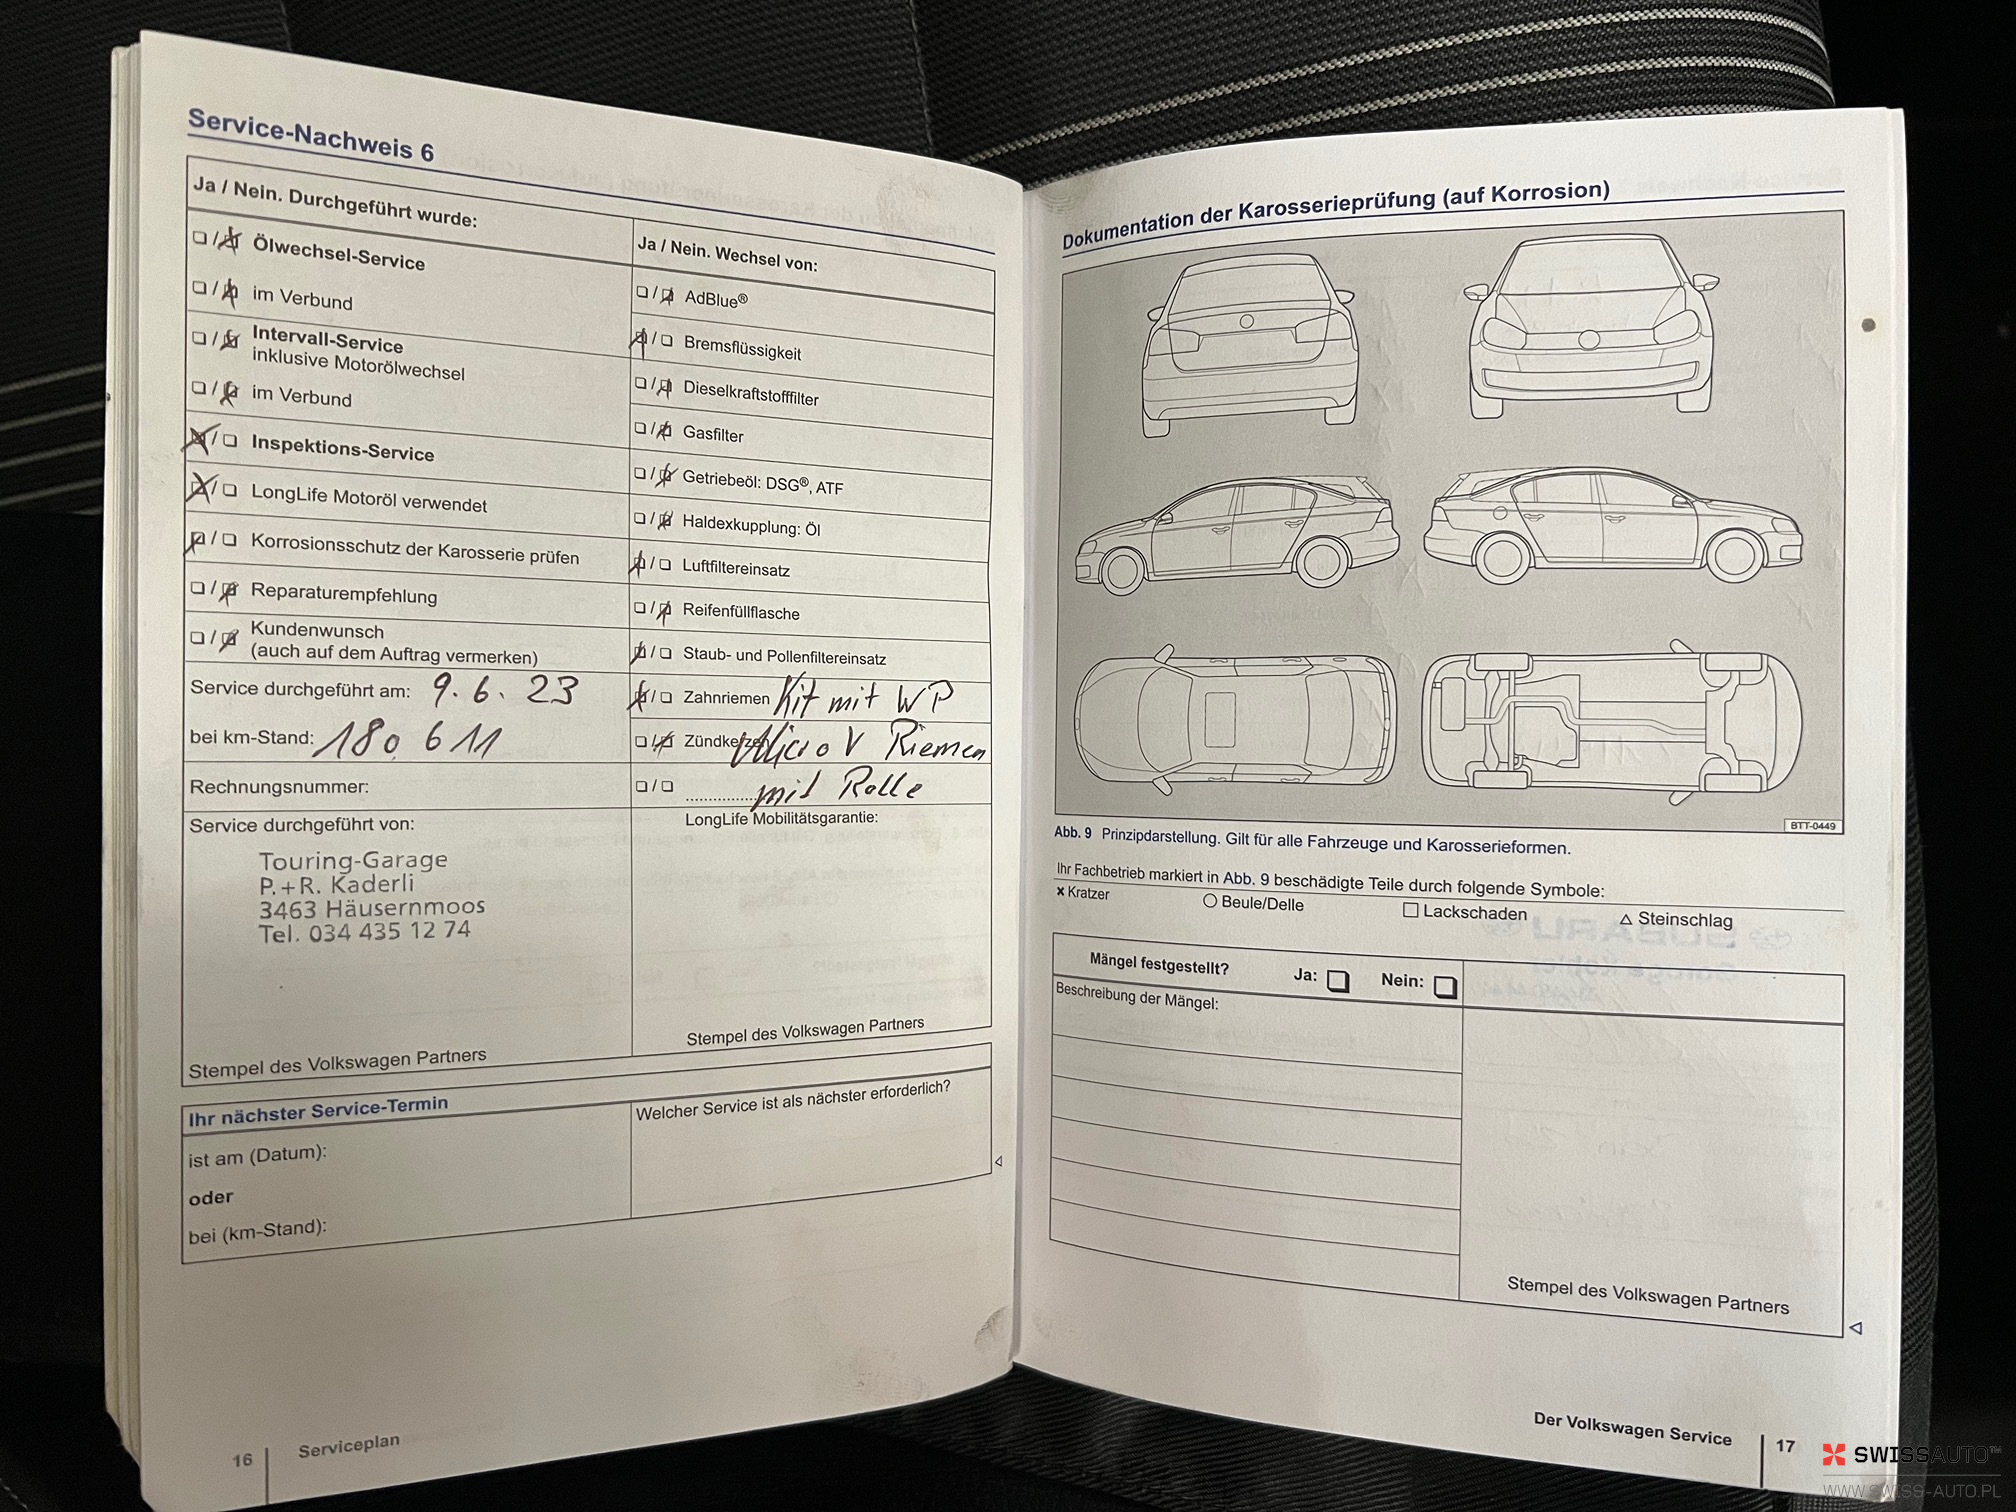 Service-Nachweis 6
Ja / Nein. Durchgeführt wurde:
Ölwechsel-Service
im Verbund
Intervall-Service
inklusive Motorölwechsel
im Verbund
Inspektions-Service
LongLife Motoröl verwendet
Korrosionsschutz der Karosserie prüfen
Reparaturempfehlung
Kundenwunsch
(auch auf dem Auftrag vermerken)
Service durchgeführt am: 9.6.23
bei km-Stand: 180 611
Rechnungsnummer:
Service durchgeführt von:
Touring-Garage
P.+R. Kaderli
3463 Häusernmoos
Tel. 034 435 12 74
Stempel des Volkswagen Partners
Ja / Nein. Wechsel von:
AdBlue®
Bremsflüssigkeit
Dieselkraftstofffilter
Gasfilter
Getriebeöl: DSG®, ATF
Haldexkupplung: Öl
Luftfiltereinsatz
Reifenfüllflasche
Staub- und Pollenfiltereinsatz
Zahnriemen Kit mit WP
Zündkerzen Micro V Riemen
mit Rolle
LongLife Mobilitätsgarantie:
Stempel des Volkswagen Partners
Ihr nächster Service-Termin
ist am (Datum):
oder
bei (km-Stand):
Welcher Service ist als nächster erforderlich?
16 Serviceplan
Dokumentation der Karosserieprüfung (auf Korrosion)
BTT-0449
Abb. 9 Prinzipdarstellung. Gilt für alle Fahrzeuge und Karosserieformen.
Ihr Fachbetrieb markiert in Abb. 9 beschädigte Teile durch folgende Symbole:
× Kratzer ○ Beule/Delle □ Lackschaden △ Steinschlag
Mängel festgestellt? Ja: Nein:
Beschreibung der Mängel:
Stempel des Volkswagen Partners
Der Volkswagen Service 17
SWISSAUTO™
WWW.SWISS-AUTO.PL